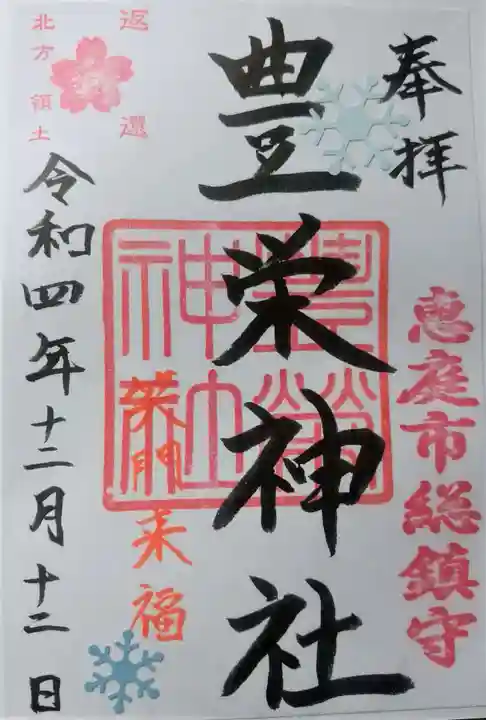 奉拝
恵庭市総鎮守
豊栄神社
豊榮神社
笑門来福
令和四年十二月十二日
北方領土
返還